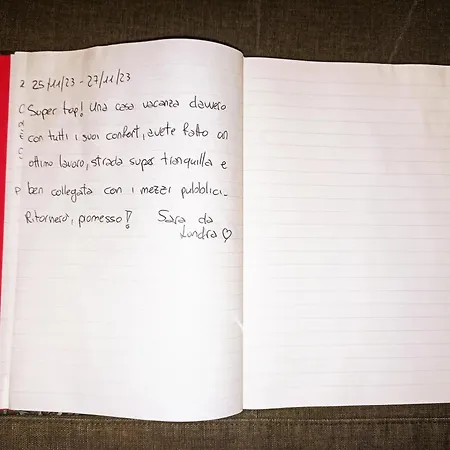 25/11/23 - 27/11/23
Super top! Una casa vacanza davvero
con tutti i suoi confort, avete fatto un
ottimo lavoro, strada super tranquilla e
ben collegata con i mezzi pubblici.
Ritornerò, promesso! Sara da
Londra ♡